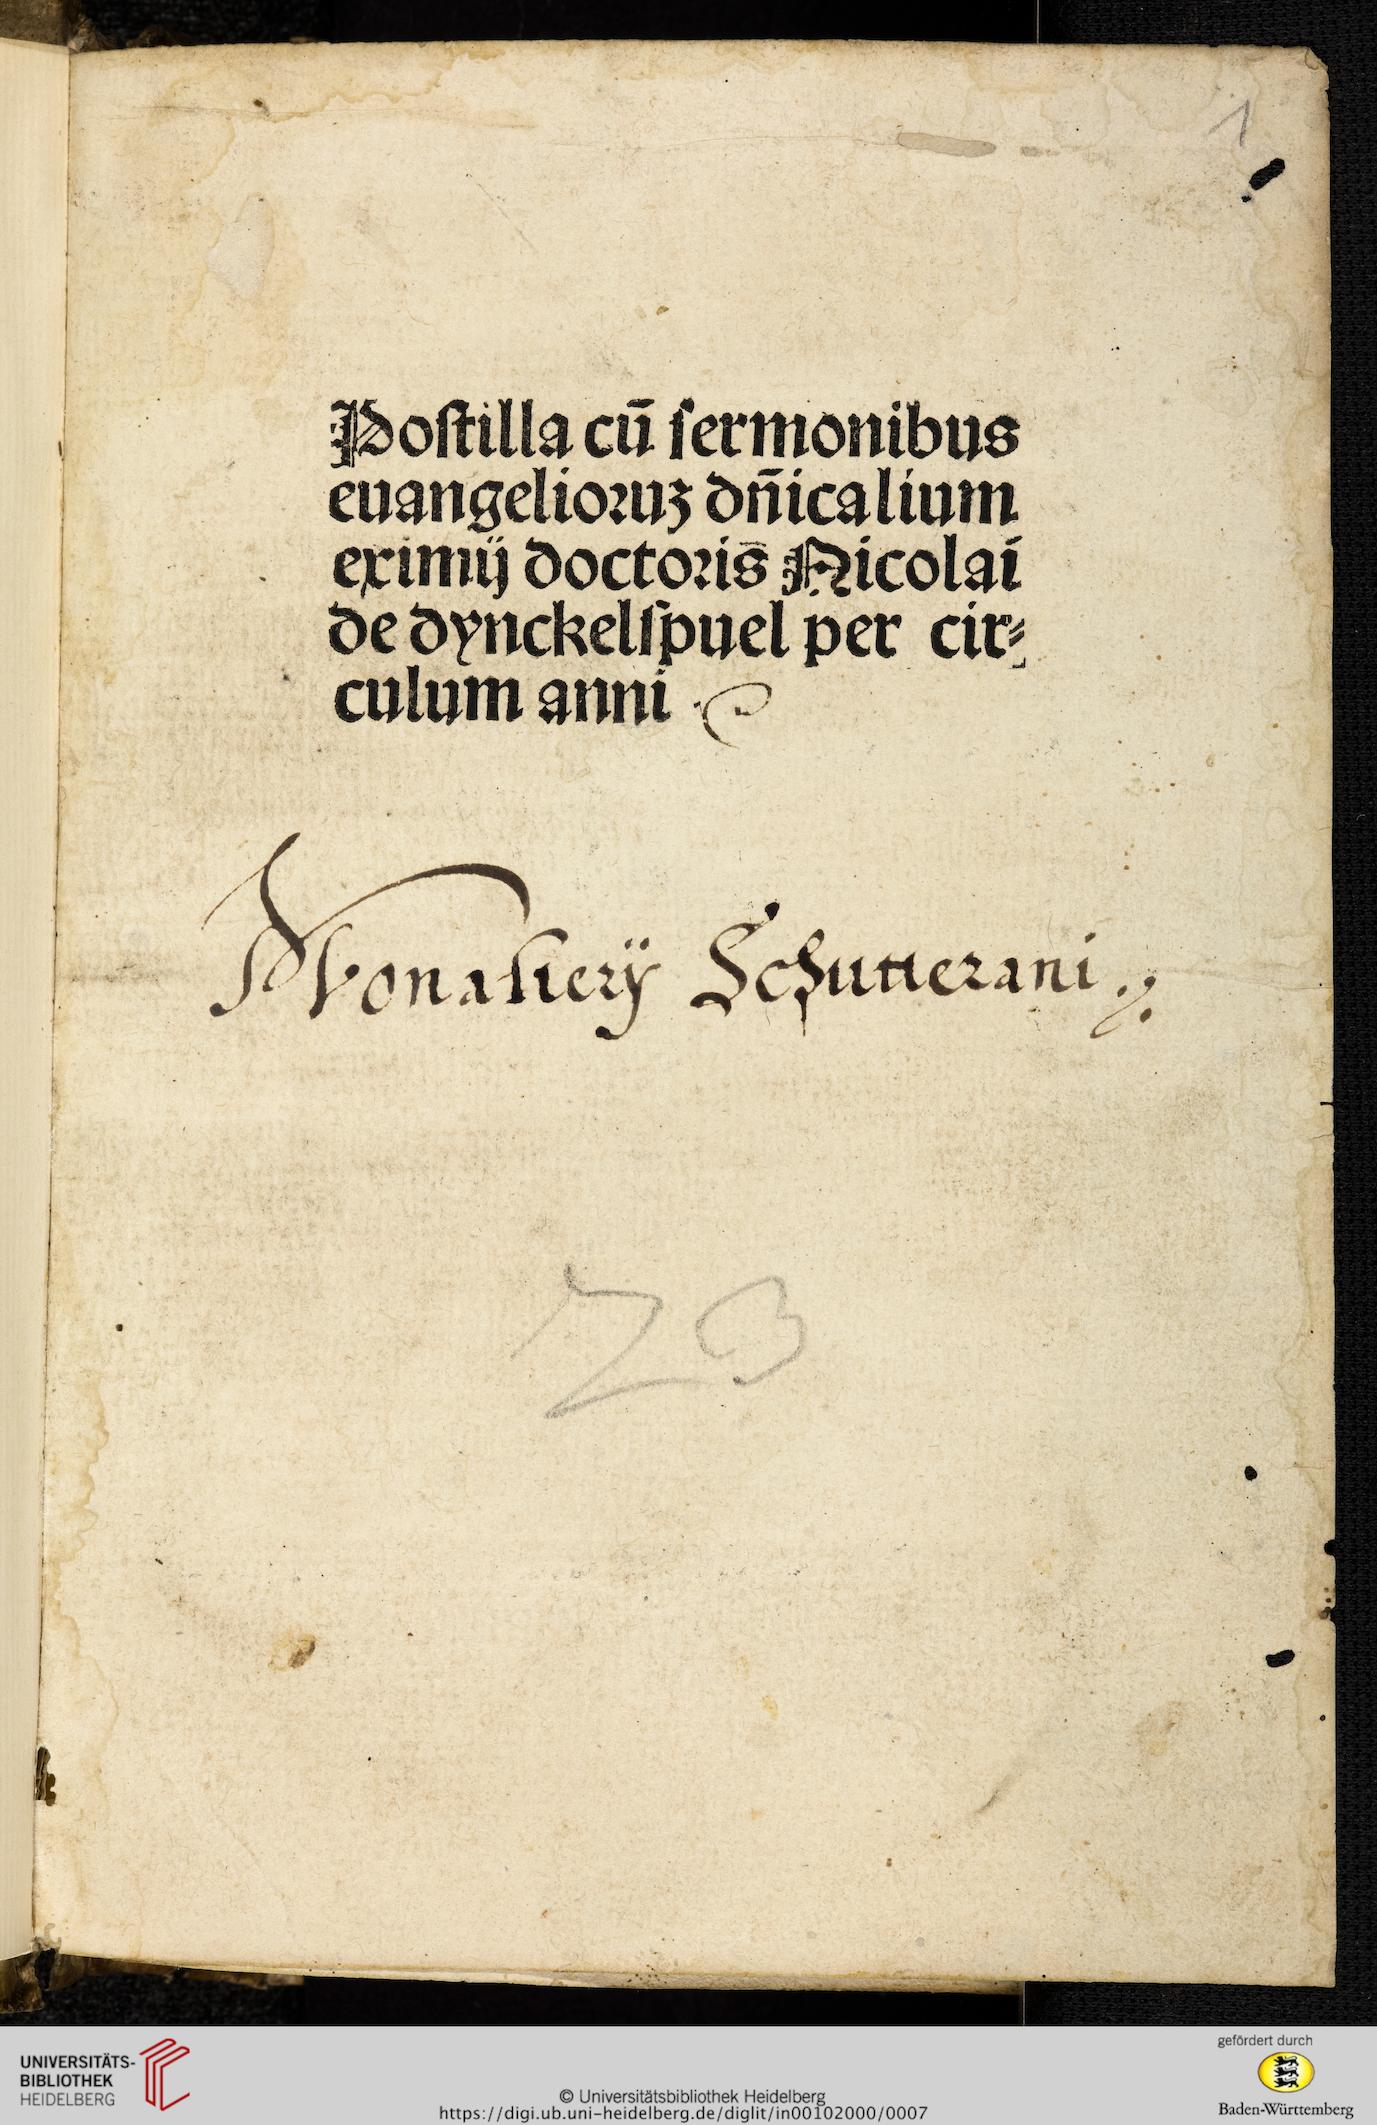 1
Poſtilla cū ſermonibus
euangelioꝛuꝫ dn̄icalium
eximij doctoꝛis Nicolai
de dynckelſpuel per cir⸗
culum anni
Monasterÿ Schutterani
23
UNIVERSITÄTS-
BIBLIOTHEK
HEIDELBERG
© Universitätsbibliothek Heidelberg
https://digi.ub.uni-heidelberg.de/diglit/in00102000/0007
gefördert durch
Baden-Württemberg